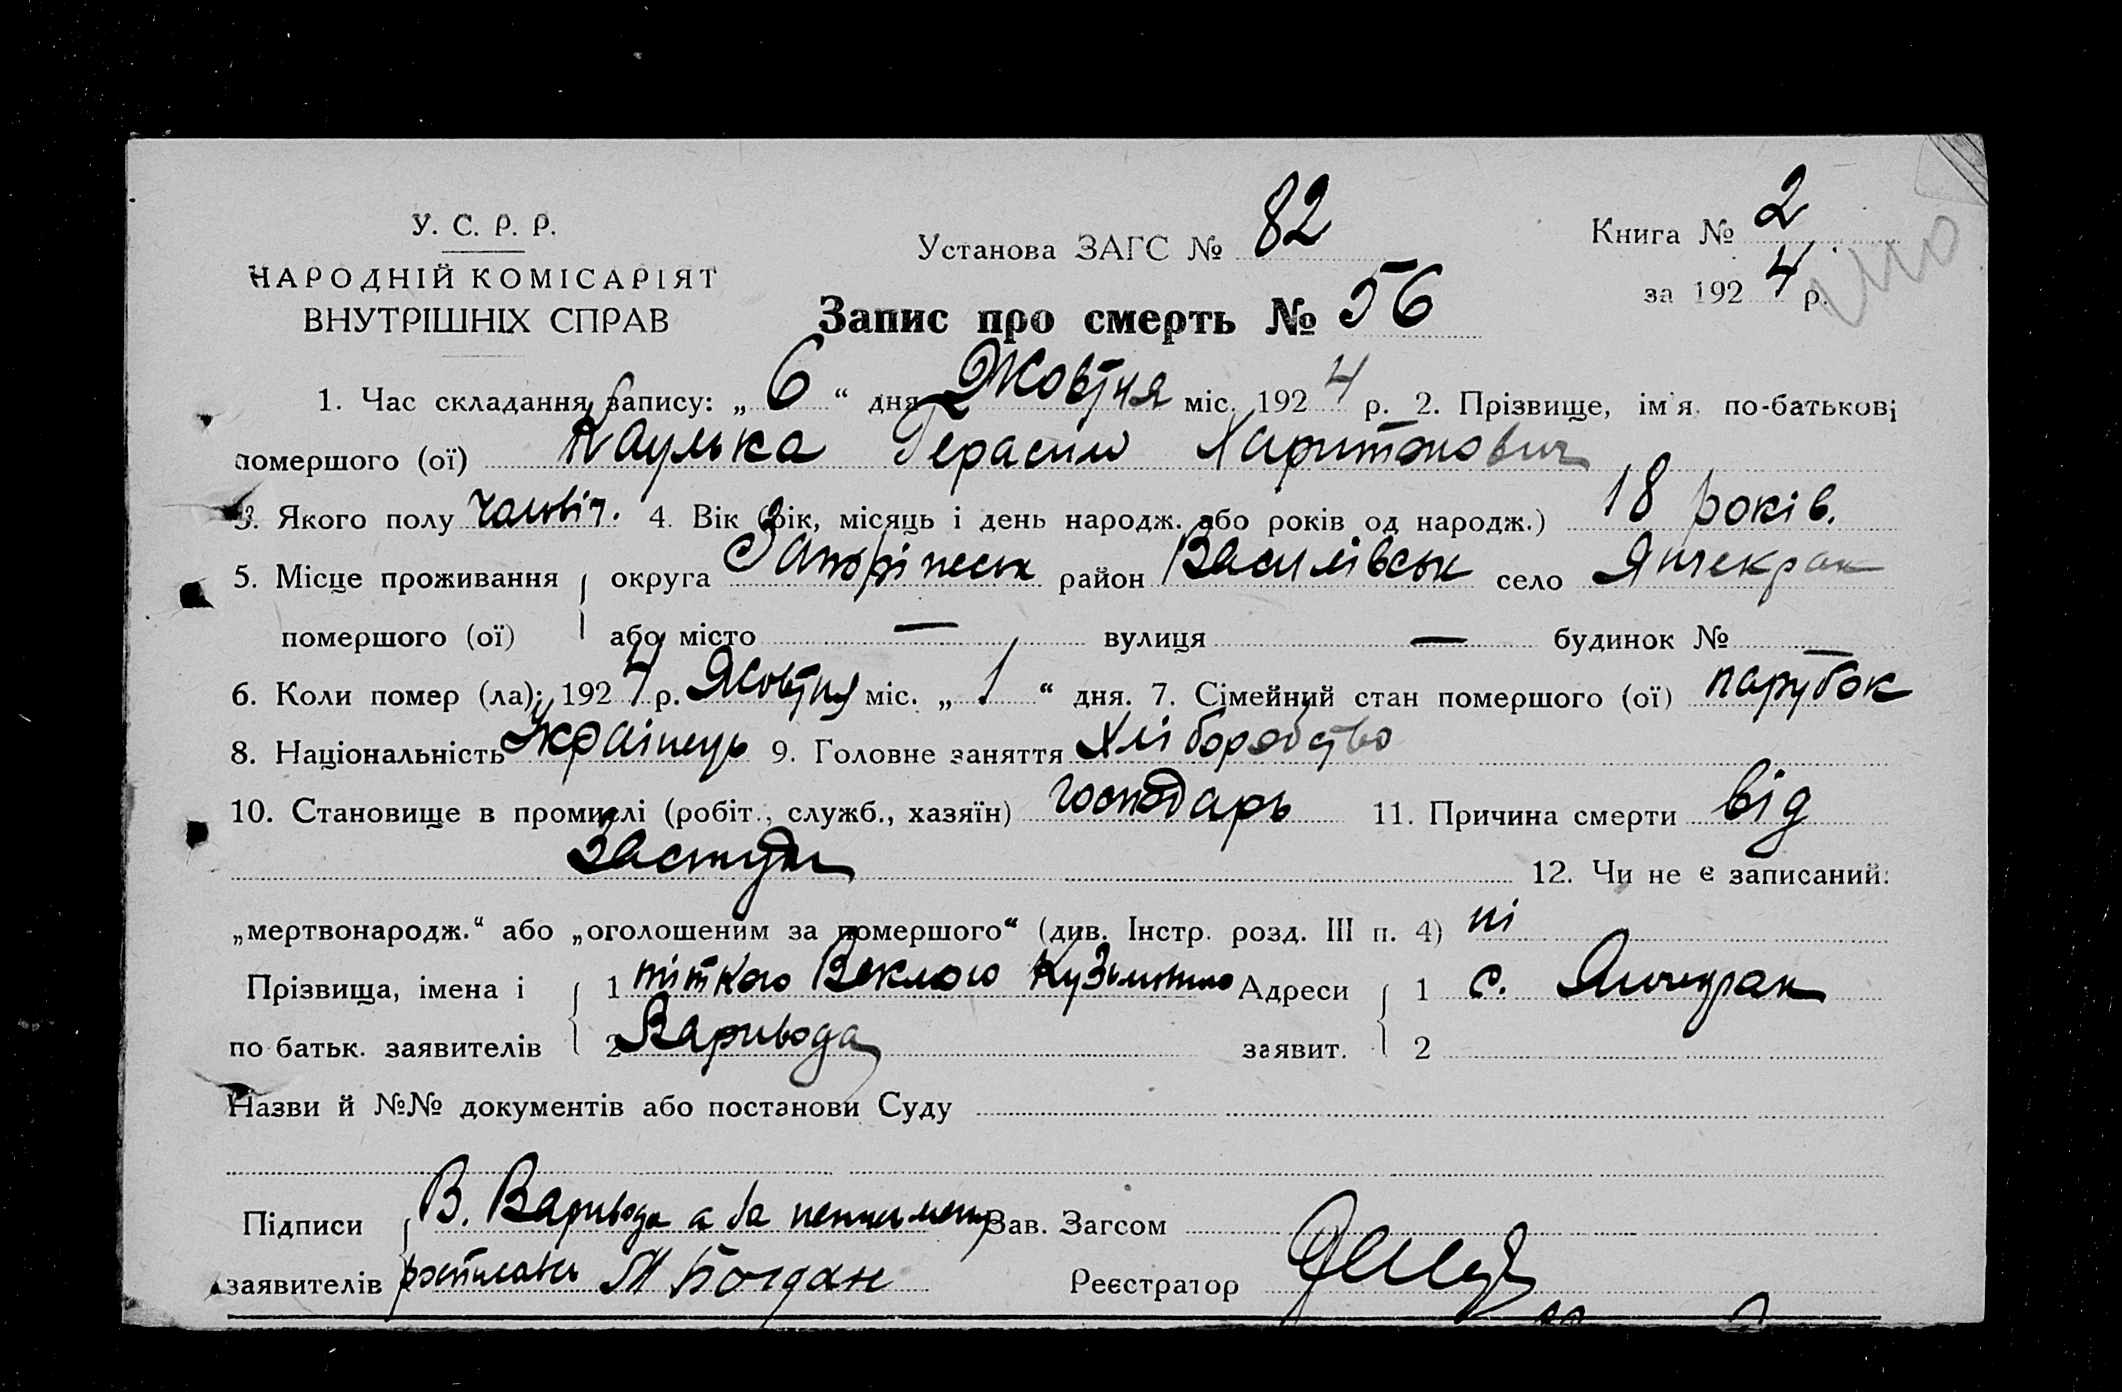 У. С. Р. Р.
НАРОДНІЙ КОМІСАРІЯТ
ВНУТРІШНІХ СПРАВ
Установа ЗАГС № 82
Книга № 2
за 192 4 р.
Запис про смерть № 56
1. Час складання запису: „ 6 “ дня Жовтня міс. 192 4 р. 2. Прізвище, ім'я, по-батькові
помершого (ої) Каулька Герасим Харитонович
3. Якого полу чоловіч. 4. Вік (рік, місяць і день народж. або років од народж.) 18 років.
5. Місце проживання округа Запоріжськ район Василівськ село Янчекрак
помершого (ої) або місто — вулиця — будинок № —
6. Коли помер (ла): 192 4 р. Жовтня міс. „ 1 “ дня. 7. Сімейний стан помершого (ої) парубок
8. Національність Українець 9. Головне заняття Хліборобство
10. Становище в промислі (робіт., служб., хазяїн) господарь 11. Причина смерти від
застуди 12. Чи не є записаний:
„мертвонародж.“ або „оголошеним за помершого“ (див. Інстр. розд. III п. 4) ні
Прізвища, імена і 1 тіткою Веклою Кузьмівною Адреси 1 с. Янчекрак
по батьк. заявителів 2 Варивода заявит. 2
Назви й №№ документів або постанови Суду
Підписи В. Варивода а за неписьмену Зав. Загсом
заявителів розписавсь М Богдан Реєстратор